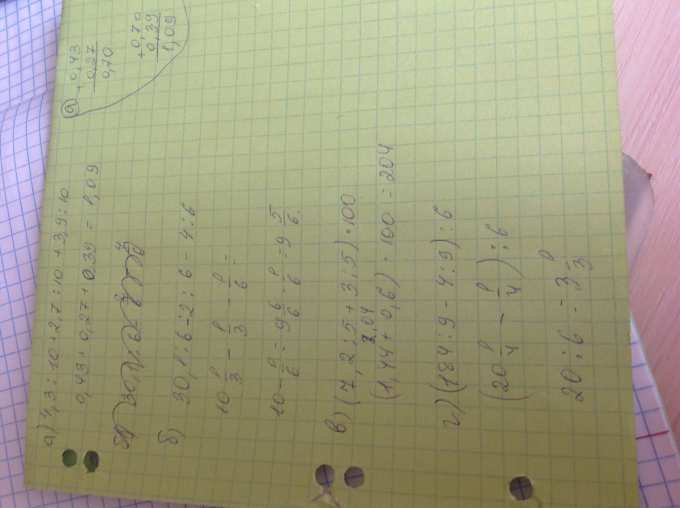 а) 4,3:10+2,7:10+3,9:10
0,43+0,27+0,39=1,09
а) +0,43
0,27
0,70
+0,70
0,39
1,09
б)
б) 30,1:6-2:6-4:6
10 1/3 - 1/3 - 1/6 =
10 - 1/6 = 9 6/6 - 1/6 = 9 5/6
в) (7,2:5+3:5)·100
2,04
(1,44+0,6)·100=204
г) (184:9-4:9):6
(20 1/4 - 1/4):6
20:6=3 1/3